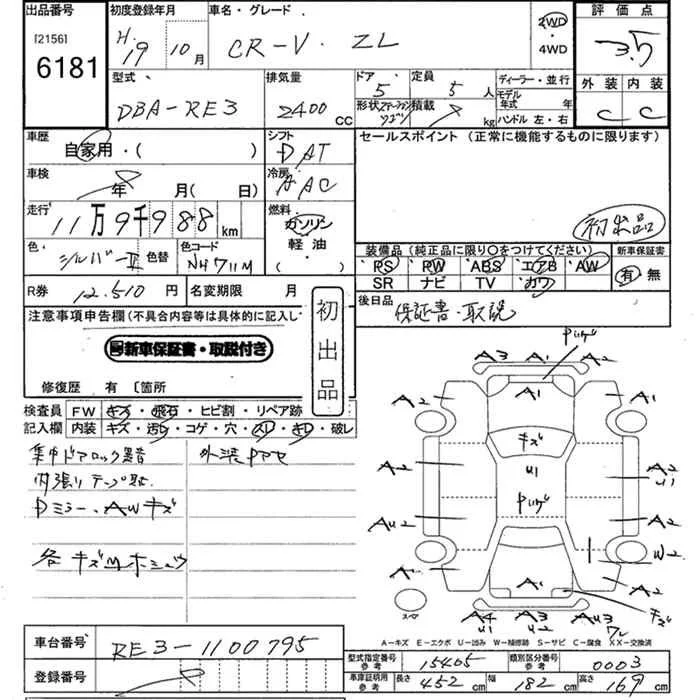 出品番号 初度登録年月 車名・グレード 2WD 評価点
[2156] H.19 10月 CR-V. ZL 4WD 3.5
6181 型式 排気量 ドア 定員 ディーラー・並行 外装 内装
DBA-RE3 2400CC 5 5人 モデル年式 年 C C
形状 積載 kg ハンドル 左・右
車歴 自家用・( ) シフト DAT セールスポイント (正常に機能するものに限ります)
車検 年 月( 日) 冷房 AAC
走行 11万9千988km 燃料 ガソリン 軽油 ( ) 初出品
色 シルバーII 色替 色コード NH711M 装備品(純正品に限り○をつけてください) 新車保証書
PS PW ABS エアB AW 有 無
SR ナビ TV カワ
R券 12.510円 名変期限 月 後日品 保証書・取説
注意事項申告欄(不具合内容等は具体的に記入し 初出品
新車保証書・取説付き
修復歴 有 〔箇所
検査員記入欄 FW キズ・飛石・ヒビ割・リペア跡
内装 キズ・汚レ・コゲ・穴・スレ・キレ・破レ
集中ドアロック 外装
内張り テープ
Dミラー、AWキズ
各キズ
A3 A1 A2
A2 A1 A2
キズ
A2 U1 A2
U1
AU2 A2
W2
A1 A2
スペア キズ
A4 AU3 AU3
U1 U2 ワレ
A-キズ E-エクボ U-凹み W-補修跡 S-サビ C-腐食 XX-交換済
車台番号 RE3-1100795 型式指定番号 参考 15405 類別区分番号 参考 0003
登録番号 車庫証明用 参考 長さ 452cm 幅 182cm 高さ 169cm